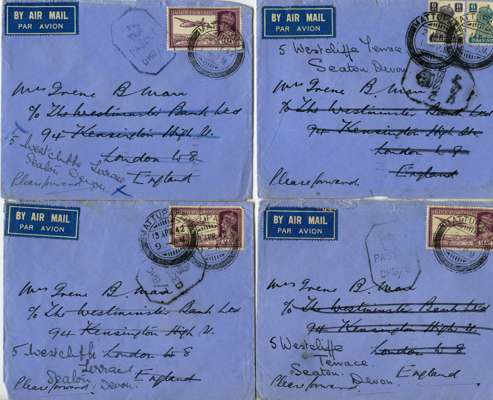 BY AIR MAIL
PAR AVION
Mrs Irene B. Marr
c/o The Westminster Bank Ltd
94 Kensington High St.
London W 8
5 Westcliffe Terrace
Seaton Devon
England
Please forward
BY AIR MAIL
PAR AVION
5 Westcliffe Terrace
Seaton Devon
Mrs Irene B. Marr
c/o The Westminster Bank Ltd
94 Kensington High St.
London W 8
England
Please forward
BY AIR MAIL
PAR AVION
MATTUP
13 APR 42
Mrs Irene B. Marr
c/o The Westminster Bank Ltd
94 Kensington High St.
5 Westcliffe London W 8
Terrace
Seaton England
Please forward Devon
BY AIR MAIL
PAR AVION
PASSED
DHB/
Mrs Irene B. Marr
c/o The Westminster Bank Ltd
94 Kensington High St.
London W 8
5 Westcliffe
Terrace England
Seaton. Devon.
Please forward